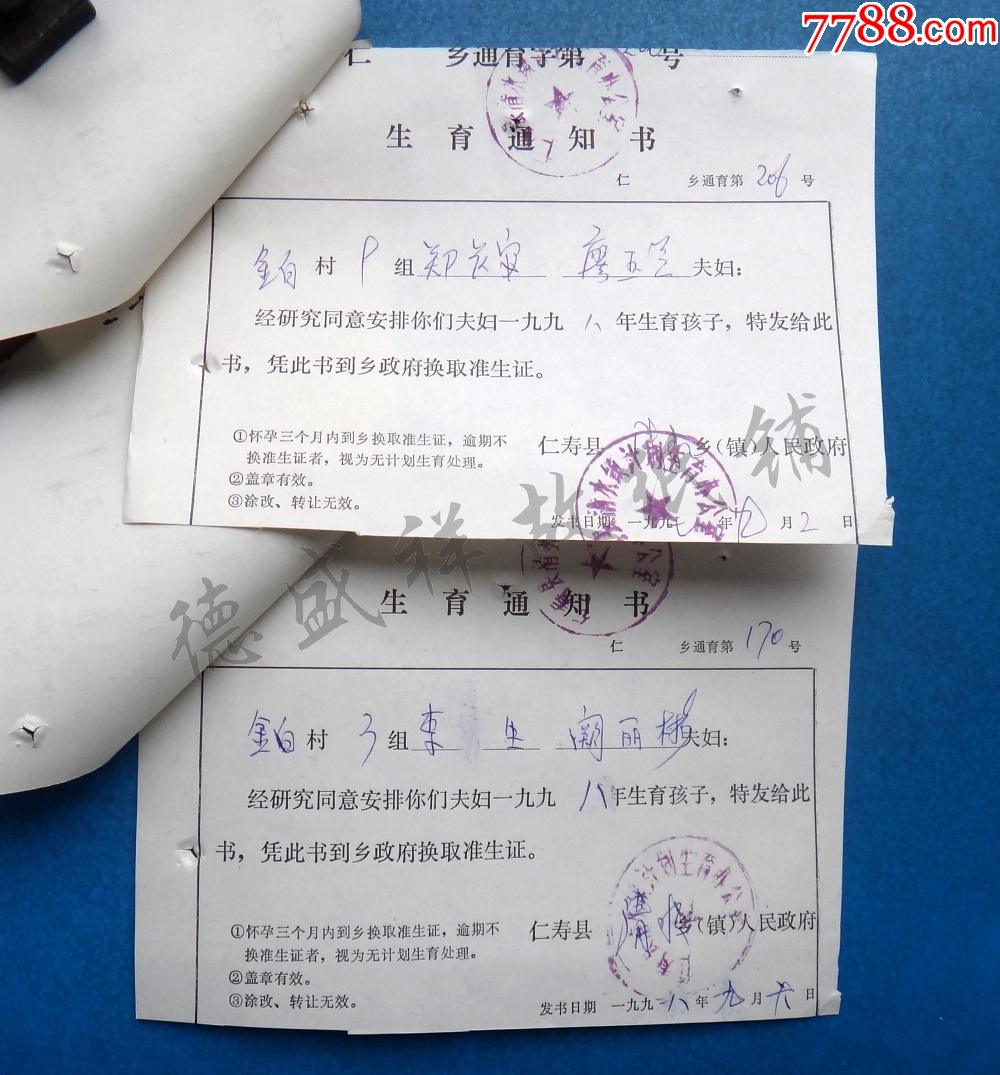 7788.com
仁 乡通育字第 号
生育通知书
仁 乡通育第 206 号
金白 村 组 郑 廖五兰 夫妇：
经研究同意安排你们夫妇一九九八年生育孩子，特发给此
书，凭此书到乡政府换取准生证。
①怀孕三个月内到乡换取准生证，逾期不
换准生证者，视为无计划生育处理。
②盖章有效。
③涂改、转让无效。
仁寿县 乡（镇）人民政府
清水镇计划生育办公室
发书日期 一九九七年九月2日
生育通知书
仁 乡通育第 170 号
金白 村 3 组 李 生 阙丽 夫妇：
经研究同意安排你们夫妇一九九八年生育孩子，特发给此
书，凭此书到乡政府换取准生证。
①怀孕三个月内到乡换取准生证，逾期不
换准生证者，视为无计划生育处理。
②盖章有效。
③涂改、转让无效。
仁寿县 清水 乡（镇）人民政府
计划生育办公室
发书日期 一九九八年九月六日
德盛祥 铺